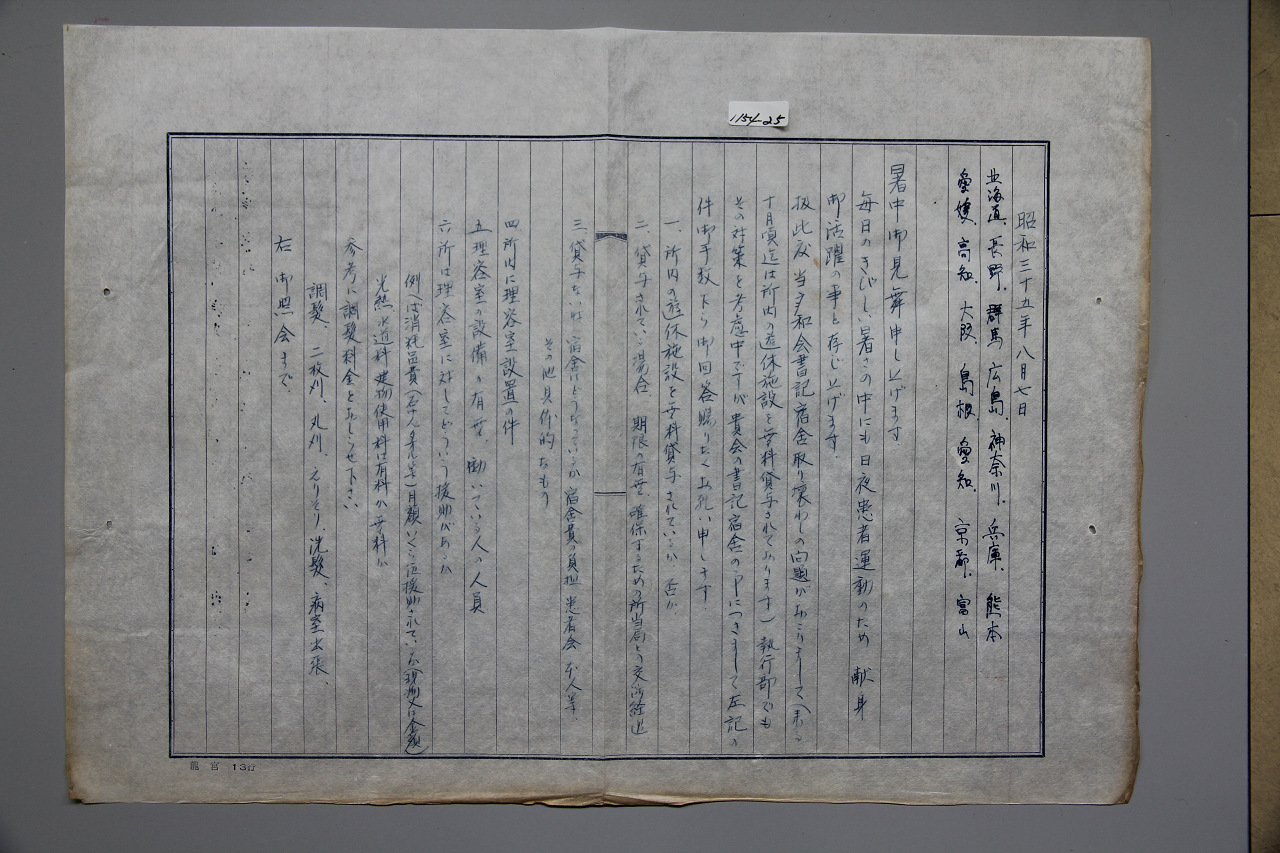 1154-25
昭和三十五年八月七日
北海道、長野、群馬、広島、神奈川、兵庫、熊本
愛媛、高知、大阪、島根、愛知、京都、富山
暑中御見舞申し上げます
毎日のきびしい暑さの中にも日夜患者運動のため 献身
御活躍の事と存じ上げます。
扨此度 当多和会書記宿舎取り壊わしの問題がおこりまして(来る
十月頃迄は所内の遊休施設を無料貸与されております)執行部でも
その対策を考慮中ですが貴会の書記宿舎の中につきまして左記の
件御手数下ら御回答賜りたくお願い申します。
一、所内の遊休施設を無料貸与されているか 否か
二、貸与されている場合 期限の有無、確保するための所当局との交渉経過
三、貸与ない時 宿舎はどうなっているか 宿舎費の負担 患者会 本人等、
その他具体的なもの
四 所内に理容室設置の件
五 理容室の設備の有無 働いている人の人員
六 所は理容室に対してどういう援助があるか
例へば消耗品費 月額いくら位援助されているか(現物又は金額)
光熱 水道料 建物使用料は有料か無料か
参考に調髪料金をおしらせ下さい
調髪、二枚刈、丸刈、えりそり、洗髪、病室出張、
右 御照会まで、
龍宮 13行